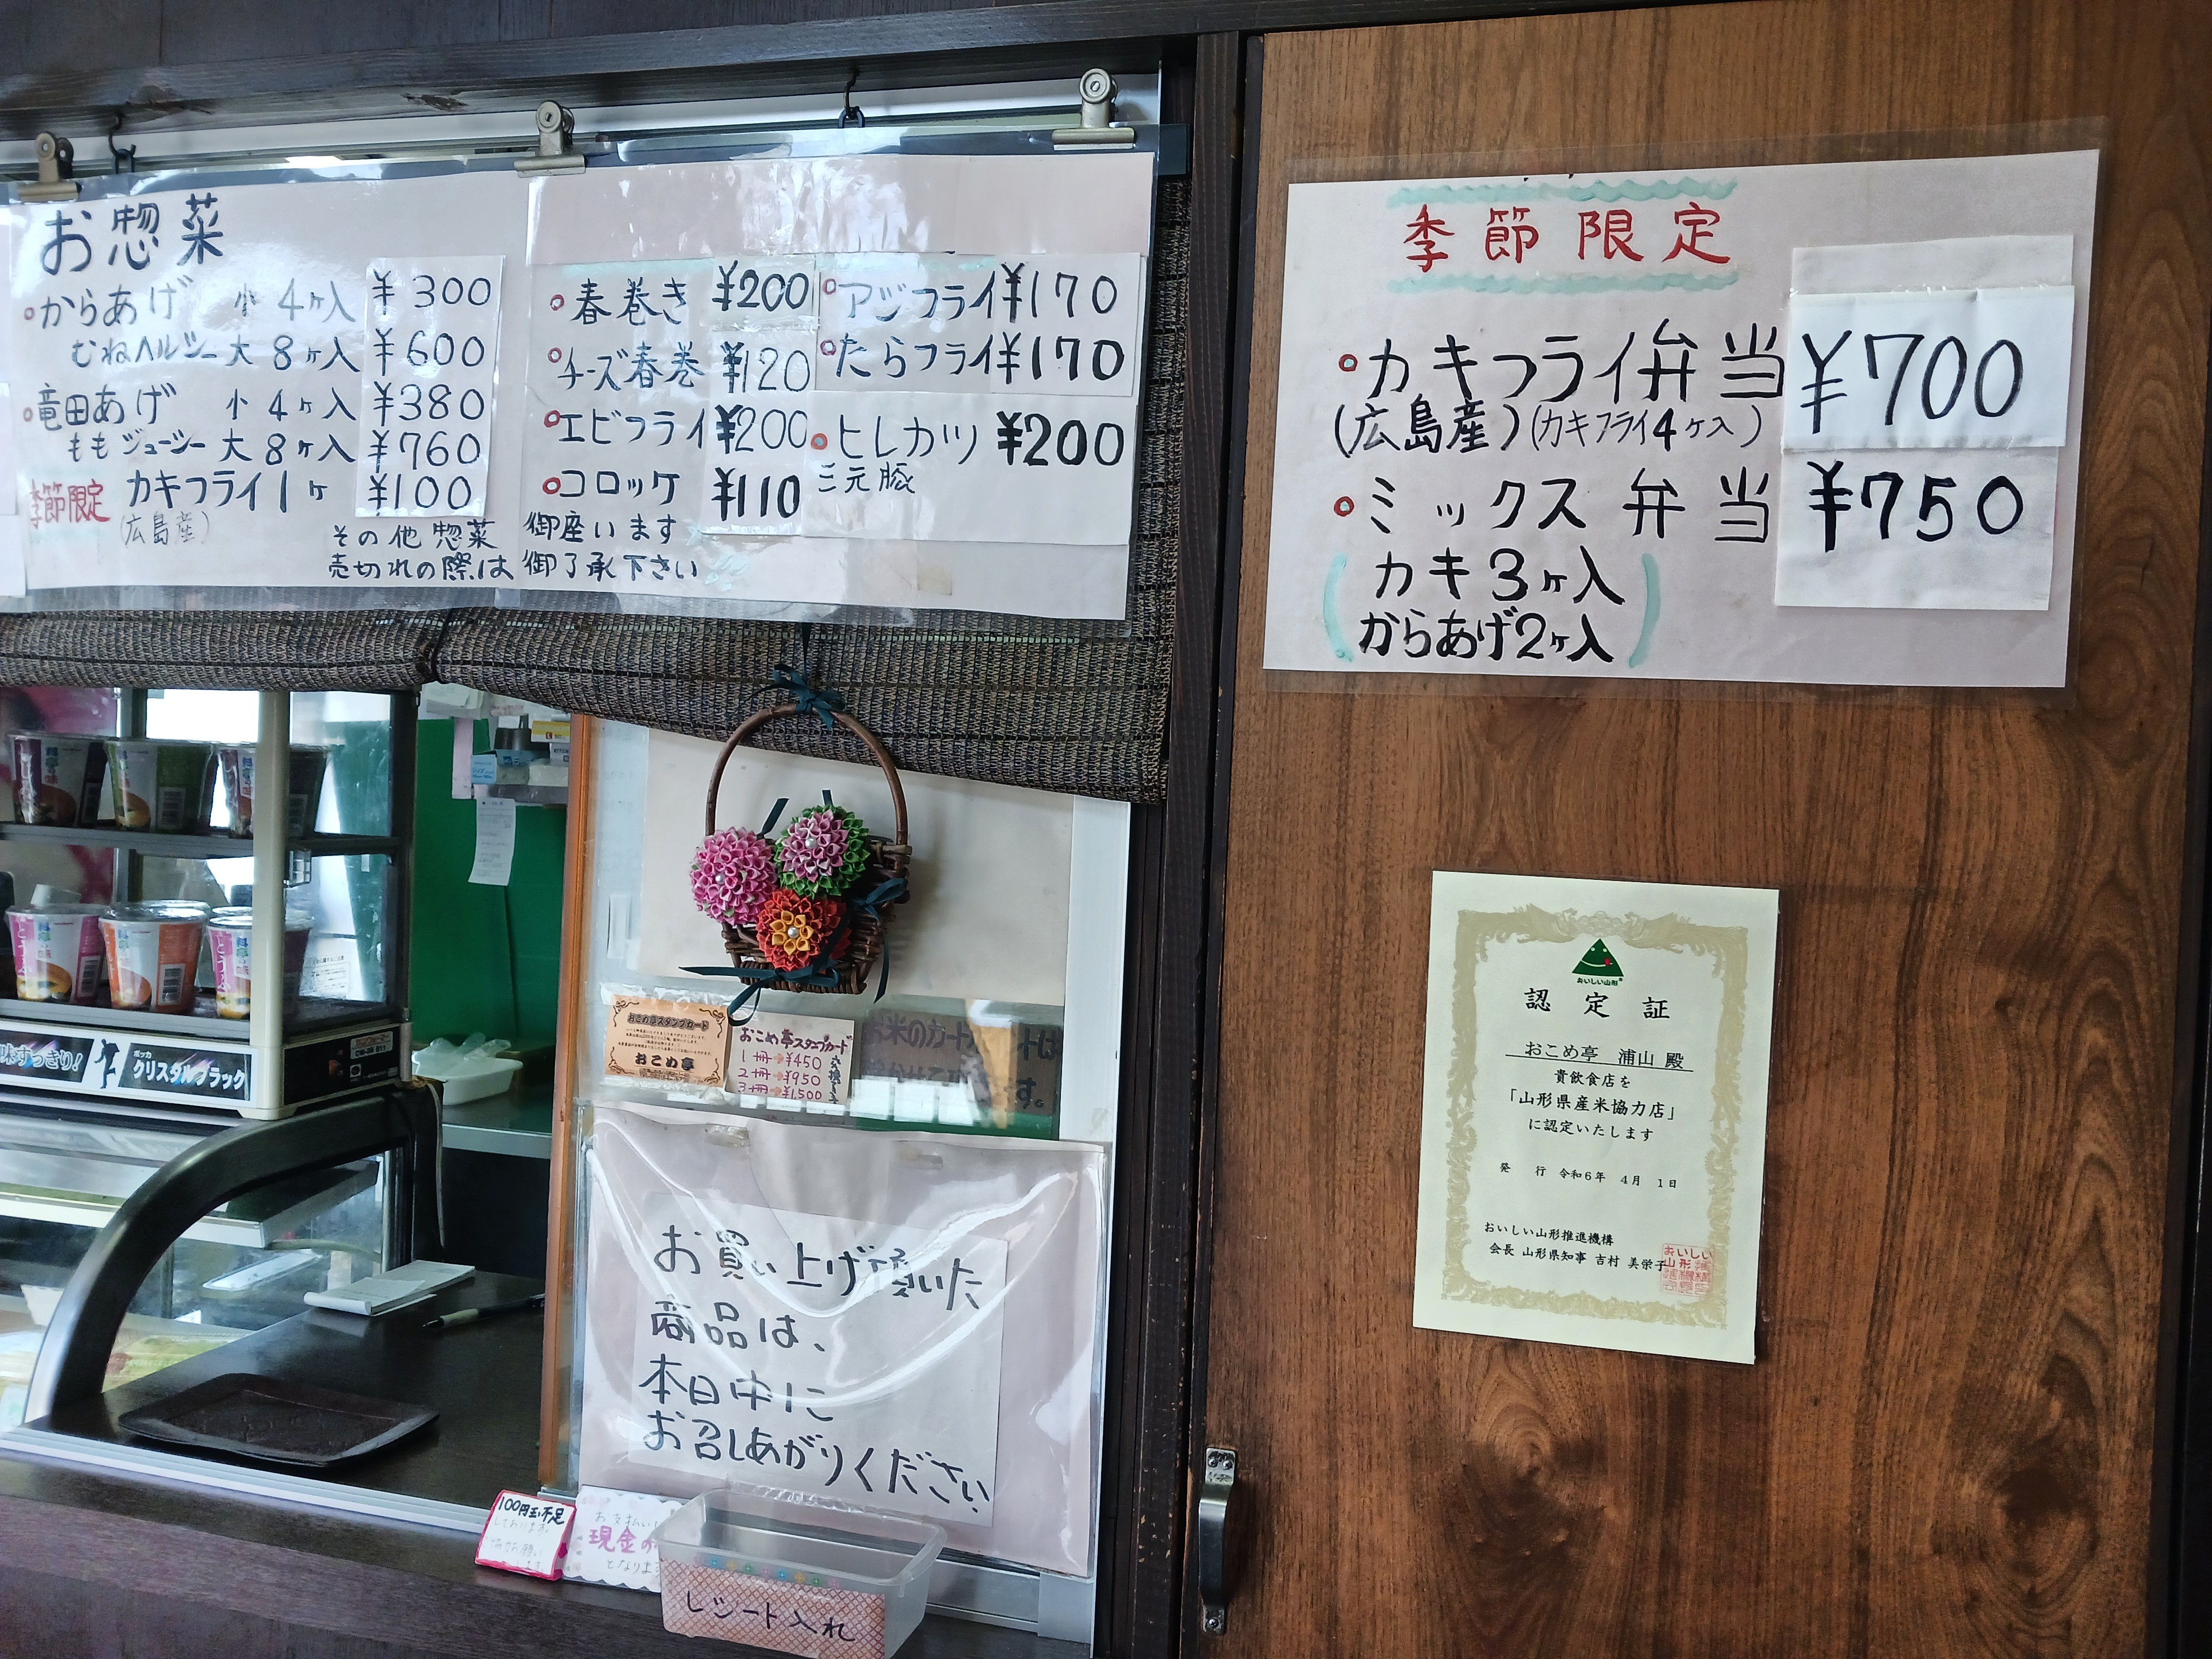 お惣菜
からあげ 小 4ヶ入 ¥300
むねヘルシー 大 8ヶ入 ¥600
竜田あげ 小 4ヶ入 ¥380
ももジューシー 大 8ヶ入 ¥760
季節限定 カキフライ1ヶ ¥100
(広島産)
春巻き ¥200
チーズ春巻 ¥120
エビフライ ¥200
コロッケ ¥110
アジフライ ¥170
たらフライ ¥170
ヒレカツ ¥200
三元豚
その他惣菜 御座います
売切れの際は 御了承下さい
季節限定
カキフライ弁当 ¥700
(広島産)(カキフライ4ヶ入)
ミックス弁当 ¥750
(カキ3ヶ入
からあげ2ヶ入)
味すっきり!
ポッカ
クリスタルブラック
おこめ亭スタンプカード
おこめ亭
おこめ亭スタンプカード
1冊→¥450
2冊→¥950
3冊→¥1,500
お買い上げ頂いた
商品は、
本日中に
お召しあがりください
100円玉不足
しております。
お支払いは
現金の
となります
レシート入れ
おいしい山形
認定証
おこめ亭 浦山 殿
貴飲食店を
「山形県産米協力店」
に認定いたします
発 行 令和6年 4月 1日
おいしい山形推進機構
会長 山形県知事 吉村 美栄子